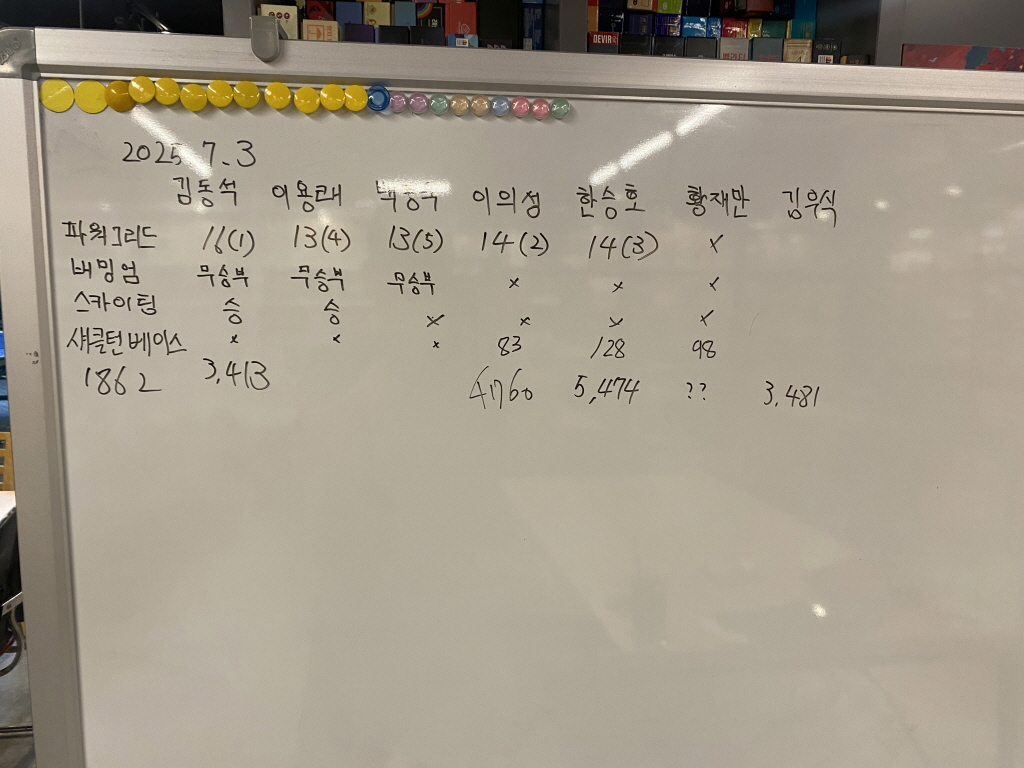 DEVIR
2025 7.3
김동석 이용래 이의섭 한승호 황재만 김우식
파워그리드 16(1) 13(4) 13(5) 14(2) 14(3) x
배밍엄 무승부 무승부 무승부 x x x
스카이팀 승 승 x x x x
섀클턴베이스 x x x 83 128 98
1862 3,413 4760 5,474 ?? 3,481